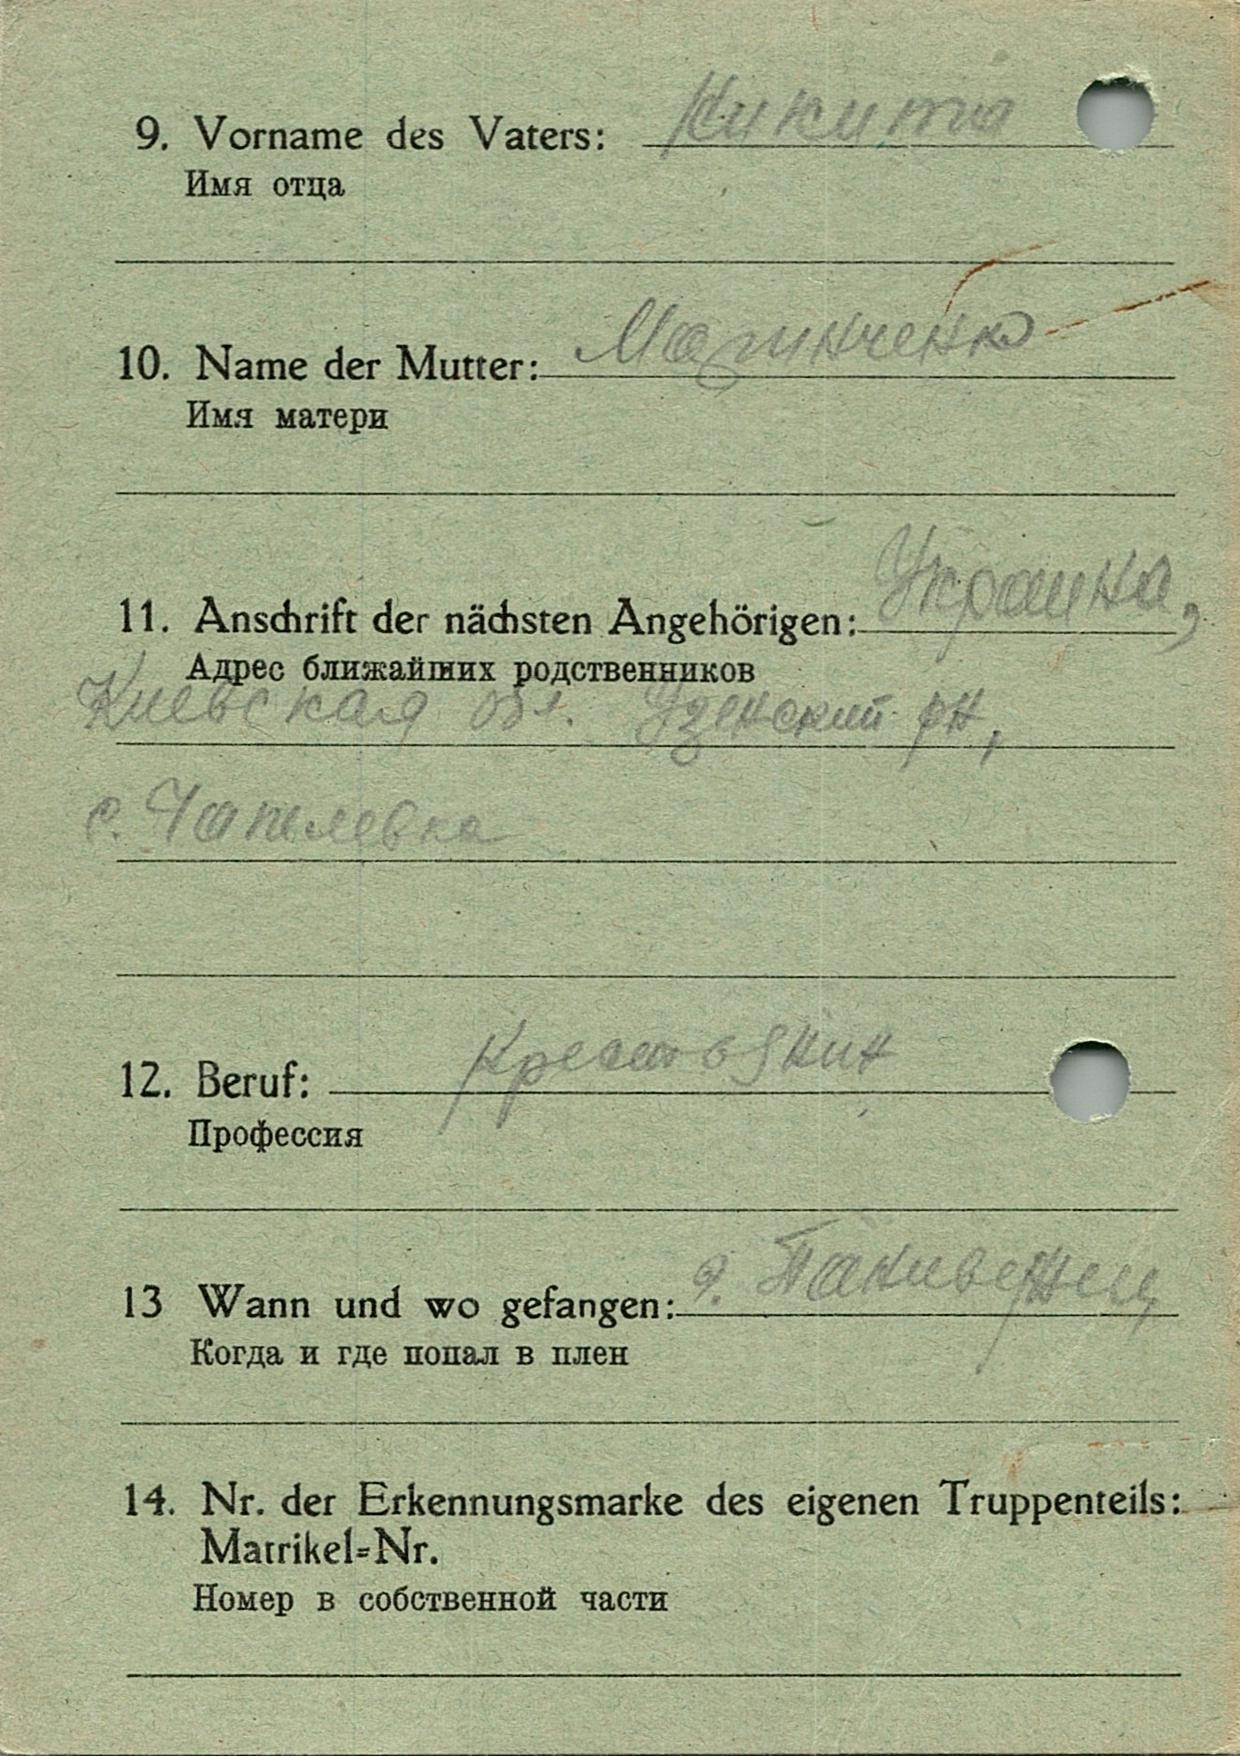 9. Vorname des Vaters: Никита
Имя отца
10. Name der Mutter: Матинченко
Имя матери
11. Anschrift der nächsten Angehörigen: Украина,
Адрес ближайших родственников
Киевская обл. Узенский рн,
с. Чапелевка
12. Beruf: Крестьянин
Профессия
13 Wann und wo gefangen:
Когда и где попал в плен
14. Nr. der Erkennungsmarke des eigenen Truppenteils:
Matrikel=Nr.
Номер в собственной части